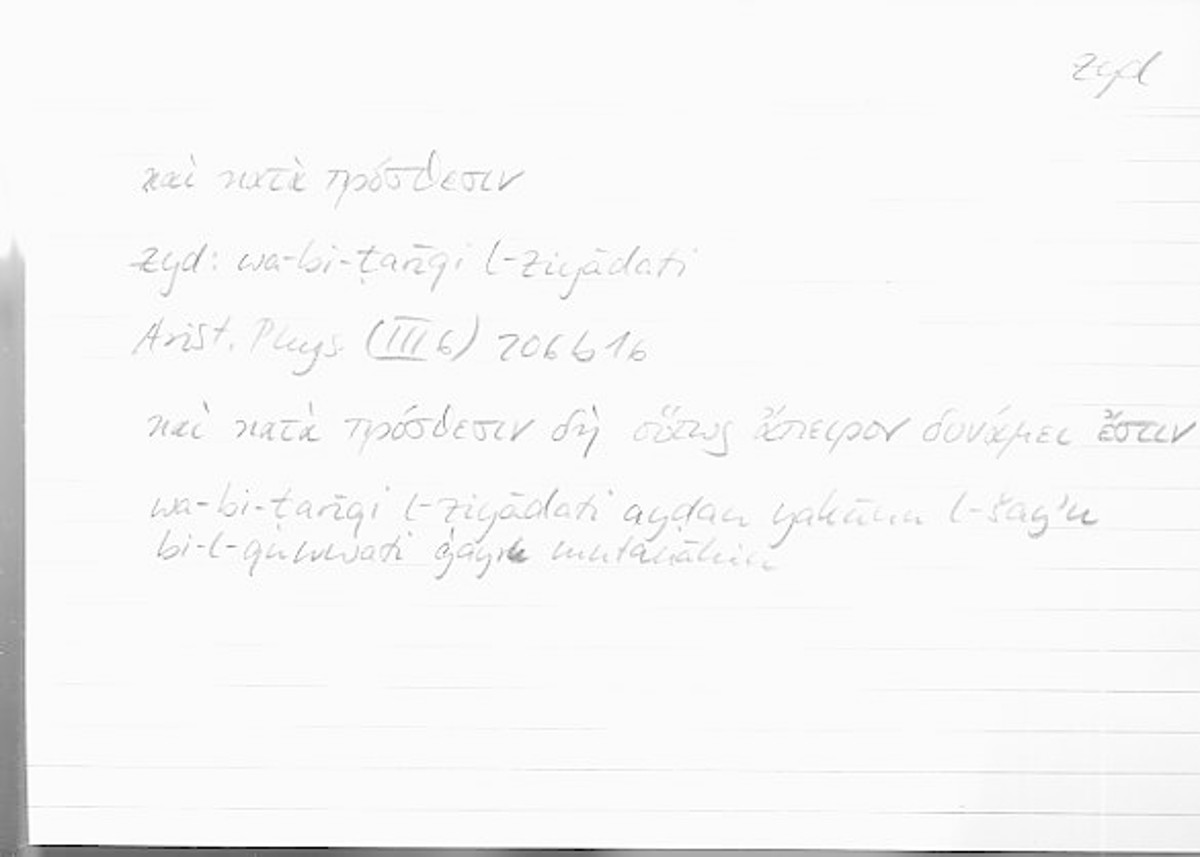 zyd
καὶ κατὰ πρόσθεσιν
zyd: wa-bi-ṭarīqi l-ziyādati
Arist. Phys. (III 6) 206 b 16
καὶ κατὰ πρόσθεσιν δὴ οὕτως ἄπειρον δυνάμει ἔστιν
wa-bi-ṭarīqi l-ziyādati ayḍan yakūnu l-šayʾu
bi-l-quwwati ġayra mutanāhin